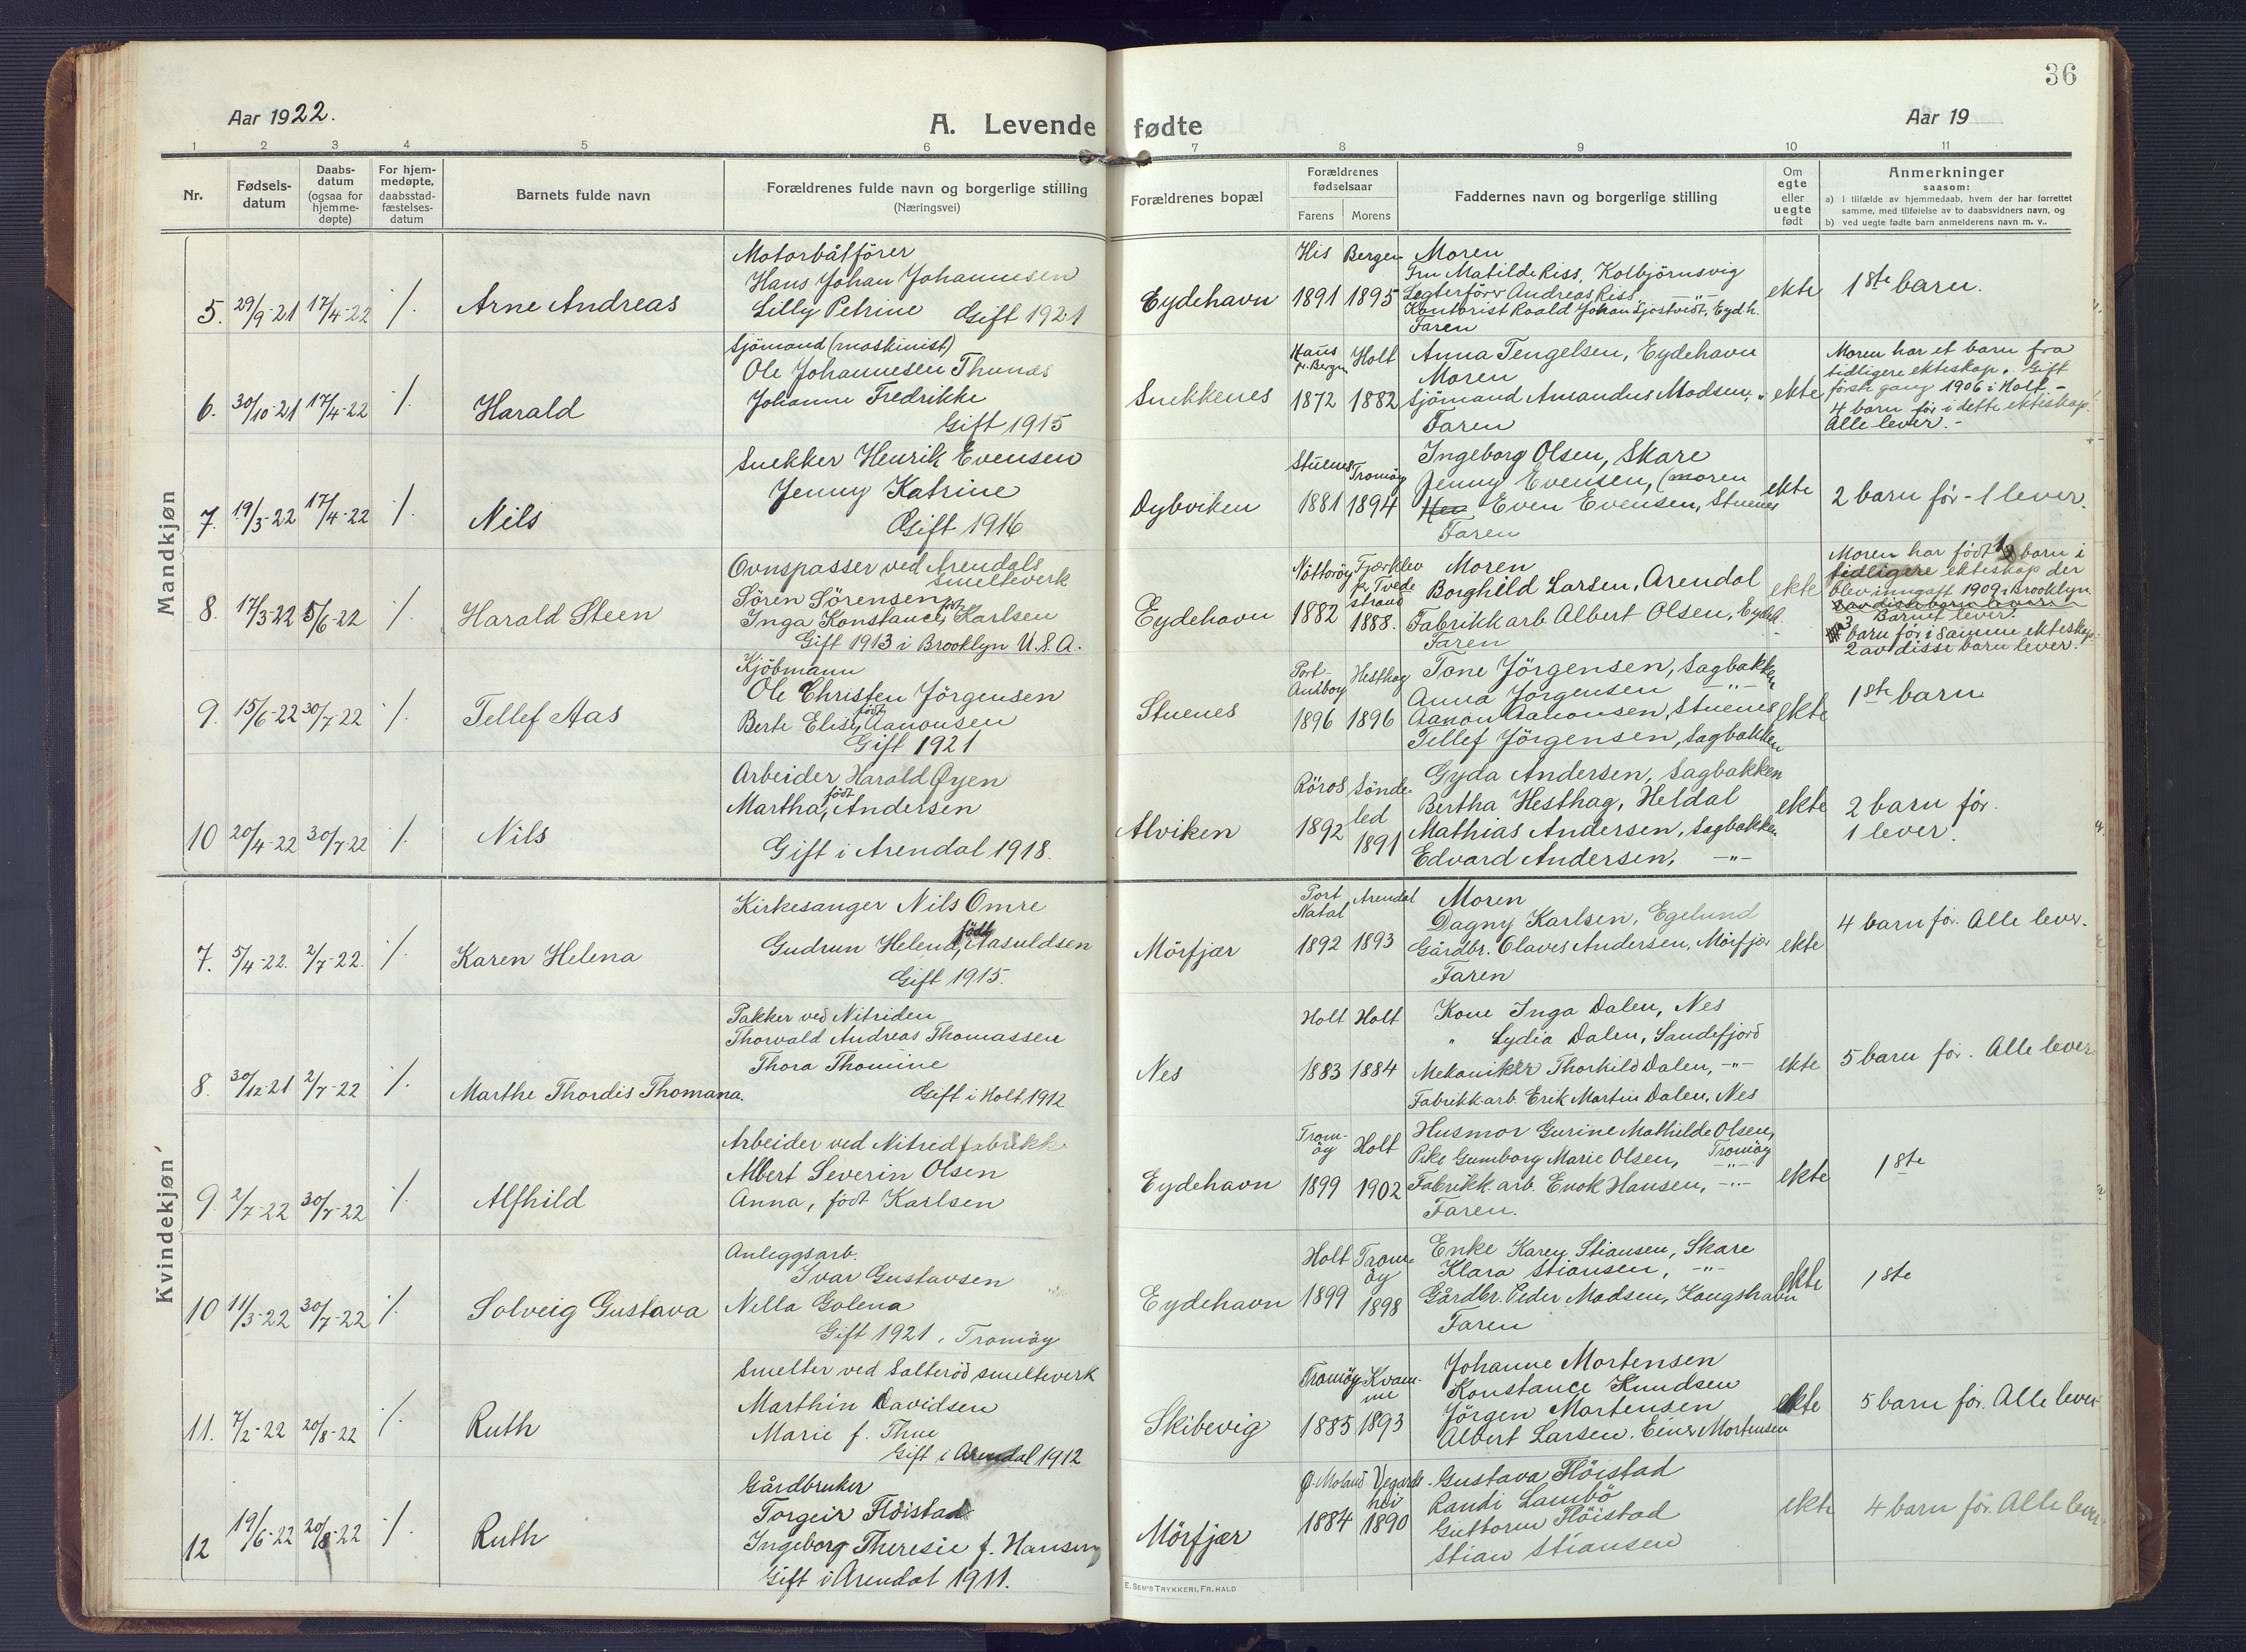 36
Aar 1922.
A. Levende fødte
Aar 19
1 2 3 4 5 6 7 8 9 10 11
Nr.
Fødsels-
datum
Daabs-
datum
(ogsaa for
hjemme-
døpte)
For hjem-
medøpte,
daabsstad-
fæstelses-
datum
Barnets fulde navn
Forældrenes fulde navn og borgerlige stilling
(Næringsvei)
Forældrenes bopæl
Forældrenes
fødselsaar
Farens Morens
Faddernes navn og borgerlige stilling
Om
egte
eller
uegte
født
Anmerkninger
saasom:
a) i tilfælde av hjemmedaab, hvem der har forrettet
samme, med tilføielse av to daabsvidners navn, og
b) ved uegte fødte barn anmelderens navn m. v..
Mandkjøn
5. 29/9-21 17/4-22 /. Arne Andreas
Motorbåtförer
Hans Johan Johannesen
Lilly Petrine Gift 1921
Eydehavn
His Bergen
1891 1895
Moren
Fru Matilde Riss, Kolbjörnsvig
Legterförer Andreas Riss —"—
Kontorist Roald Johan Sjostvedt, Eydh.
Faren
ekte
1ste barn.
6. 30/10-21 17/4-22 /. Harald
Sjömand (maskinist)
Ole Johannesen Thunæs
Johanne Fredrikke
Gift 1915
Snekkenes
Haus
pr. Bergen
Holt
1872 1882
Anna Tengelsen, Eydehavn
Moren
Sjömand Amandus Madsen, "
Faren
ekte
Moren har et barn fra
tidligere ekteskap. Gift
förste gang 1906 i Holt -
4 barn för i dette ekteskap.
Alle lever. -
7. 19/3-22 17/4-22 /. Nils
Snekker Henrik Evensen
Jenny Katrine
Gift 1916
Dybviken
Stuenes Tromöy
1881 1894
Ingeborg Olsen, Skare
Jenny Evensen, (moren
Even Evensen, Stuenes
Faren
ekte
2 barn för - 1 lever.
8. 17/3-22 5/6-22 /. Harald Steen
Ovnspasser ved Arendals
smelteverk
Sören Sörensen
Inga Konstance, født Karlsen
Gift 1913 i Brooklyn U.S.A.
Eydehavn
Nötteröy Fjærklev
p. Tvede
strand
1882 1888.
Moren
Borghild Larsen, Arendal
Fabrikkarb. Albert Olsen, Eydeh.
Faren
ekte
Moren har født 1 barn i
tidligere ekteskap der
blev inngått 1909 i Brooklyn
Barnet lever.
3 barn för i samme ekteskap.
2 av disse barn lever.
9. 15/6-22 30/7-22 /. Tellef Aas
Kjöbmann
Ole Christen Jörgensen
Berte Elise, født Aanonsen
Gift 1921
Stuenes
Port- Hesthag
1896 1896
Tone Jörgensen, Sagbakken
Anna Jörgensen —"—
Aanon Aanonsen, Stuenes
Tellef Jörgensen, Sagbakken
ekte
1ste barn
10 20/4-22 30/7-22 /. Nils
Arbeider Harald Øyen
Martha, født Andersen
Gift i Arendal 1918.
Alviken
Röros Sönde-
led
1892 1891
Gyda Andersen, Sagbakken
Bertha Hesthag, Heldal
Mathias Andersen, Sagbakken
Edvard Andersen, —"—
ekte
2 barn för.
1 lever.
Kvindekjøn
7. 5/4-22. 2/7-22. /. Karen Helena
Kirkesanger Nils Omre
Gudrun Helena, født Aasuldsen
Gift 1915.
Mörfjær
Port
Natal
Arendal
1892 1893
Moren
Dagny Karlsen, Egelund
Gårdbr. Olaves Andersen, Mörfjær
Faren
ekte
4 barn för. Alle lever.
8. 30/12-21 2/7-22 /. Marthe Thordis Thomana.
Pakker ved Nitriden
Thorvald Andreas Thomassen
Thora Thomine
Gift i Holt 1912
Nes
Holt Holt
1883 1884
Kone Inga Dalen, Nes
" Lydia Dalen, Sandefjord
Mekaniker Thorkild Dalen, —"—
Fabrikkarb. Erik Martin Dalen, Nes
ekte
5 barn för. Alle lever.
9. 2/7-22 30/7-22 /. Alfhild
Arbeider ved Nitridfabrikk
Albert Severin Olsen
Anna, født Karlsen
Eydehavn
Trom-
öy
Holt
1899 1902
Husmor Gurine Mathilde Olsen,
Tromöy
Pike Gumborg Marie Olsen, —"—
Fabrikk.arb. Enok Hansen, —"—
Faren.
ekte
1ste
10 11/3-22 30/7-22 /. Solveig Gustava
Anleggsarb.
Ivar Gustavsen
Nella Golena
Gift 1921, Tromöy
Eydehavn
Holt Trom-
öy
1899 1898
Enke Karen Stiansen, Skare
Klara Stiansen, —"—
Gårdbr. Peder Madsen, Kongshavn
Faren
ekte
1ste
11. 7/2-22 20/8-22 /. Ruth
Smelter ved Salteröd smelteverk
Marthin Davidsen
Marie f. Thue
Gift i Arendal 1912
Skibevig
Tromöy Kvam-
me
1885 1893
Johanne Mortensen
Konstance Knudsen
Jörgen Mortensen
Albert Larsen. Einar Mortensen
ekte
5 barn för. Alle lever
12 19/6-22 20/8-22 /. Ruth
Gårdbruker
Torgeir Flöistad
Ingeborg Theresie f. Hansen
Gift i Arendal 1911.
Mörfjær
Ø. Moland Vegards-
hei
1884 1890
Gustava Flöistad
Randi Lambö
Guttorm Flöistad
Stian Stiansen
ekte
4 barn för. Alle lever
E. SEM'S TRYKKERI, FR.HALD